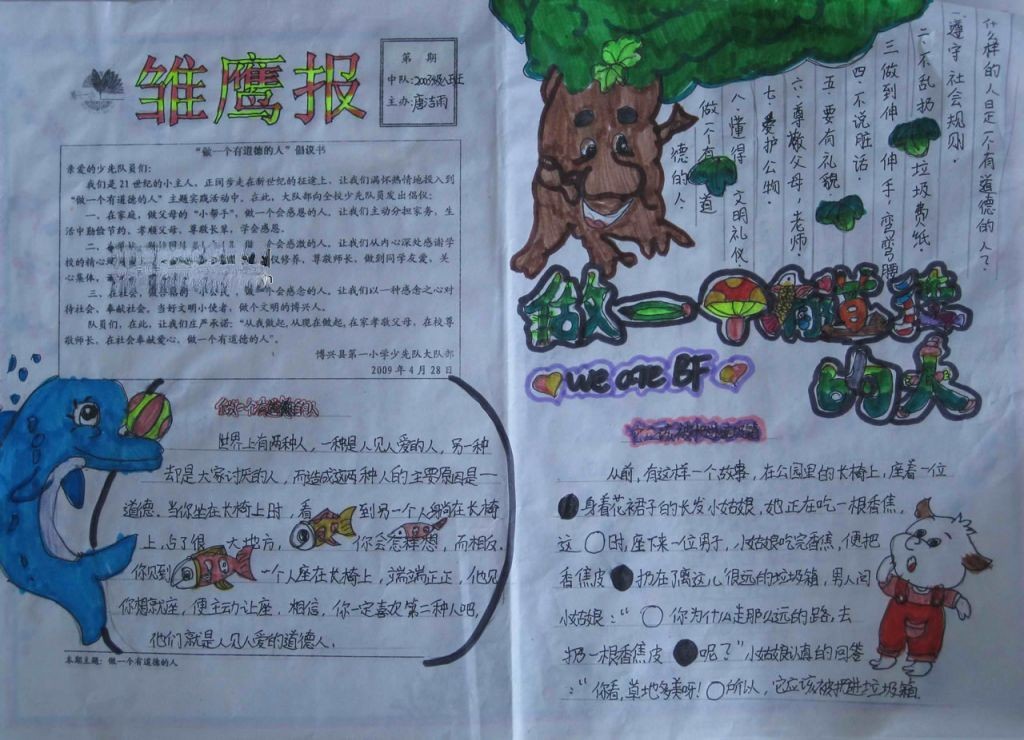 雏鹰报
第 期
中队:2003级八班
主办:唐洁雨
“做一个有道德的人”倡议书
亲爱的少先队员们:
我们是21世纪的小主人,正阔步走在新世纪的征途上,让我们满怀热情地投入到
“做一个有道德的人”主题实践活动中。在此,大队部向全校少先队员发出倡仪:
一、在家庭,做父母的“小帮手”,做一个会感恩的人。让我们主动分担家务,生
活中勤俭节约、孝顺父母、尊敬长辈,学会感恩。
二、会感激的人。让我们从内心深处感谢学
校的精心 仪修养,尊敬师长,做到同学友爱,关
心集体,
三、在社会, 会感念的人。让我们以一种感念之心对
待社会、奉献社会。当好文明小使者,做个文明的博兴人。
队员们,在此,让我们庄严承诺:“从我做起,从现在做起,在家孝敬父母,在校尊
敬师长,在社会奉献爱心,做一个有道德的人”。
博兴县第一小学少先队大队部
2009年4月28日
做一个有道德的人
世界上有两种人,一种是人见人爱的人,另一种
却是大家讨厌的人,而造成这两种人的主要原因是一
道德.当你坐在长椅上时,看 到另一个人躺在长椅
上,占了很 大地方, 你会怎样想,而相反.
你见到 一个人座在长椅上,端端正正,他见
你想就座,便主动让座,相信,你一定喜欢第二种人吧,
他们就是人见人爱的道德人.
本期主题:做一个有道德的人
什么样的人是一个有道德的人了?
一遵守社会规则.
二不乱扔垃圾费纸.
三做到伸伸手,弯弯腰
四.不说脏话.
五.要有礼貌
六.尊敬父母,老师.
七.爱护公物.
八.懂得文明礼仪.
做一个有道德的人.
做一个有道德
的人
we are BF
从前,有这样一个故事,在公园里的长椅上,座着一位
身着花裙子的长发小姑娘,她正在吃一根香焦,
这 时,座下来一位男子,小姑娘吃完香焦,便把
香焦皮 扔在了离这儿很远的垃圾箱,男人问
小姑娘:“ 你为什么走那么远的路,去
扔一根香焦皮 呢?”小姑娘认真的回答
:“你看,草地多美呀! 所以,它应该被扔进垃圾箱.